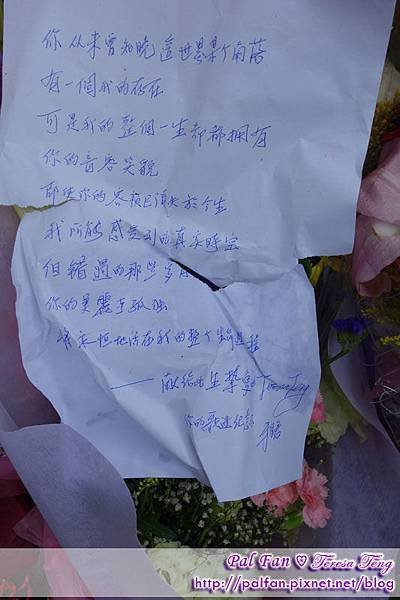 你从未曾知晓這世界某个角落
有一個我的存在
可是我的整個一生却都拥有
你的音容笑貌
那些你的容颜已消失於今生
我所能感受到的真实時空
但錯過的那些岁月
你的美麗与孤独
将永恒地活在我的整个生命過程
——献给 生 Teresa Teng
你的歌迷纪念
Pal Fan ♡ Teresa Teng
http://palfan.pixnet.net/blog